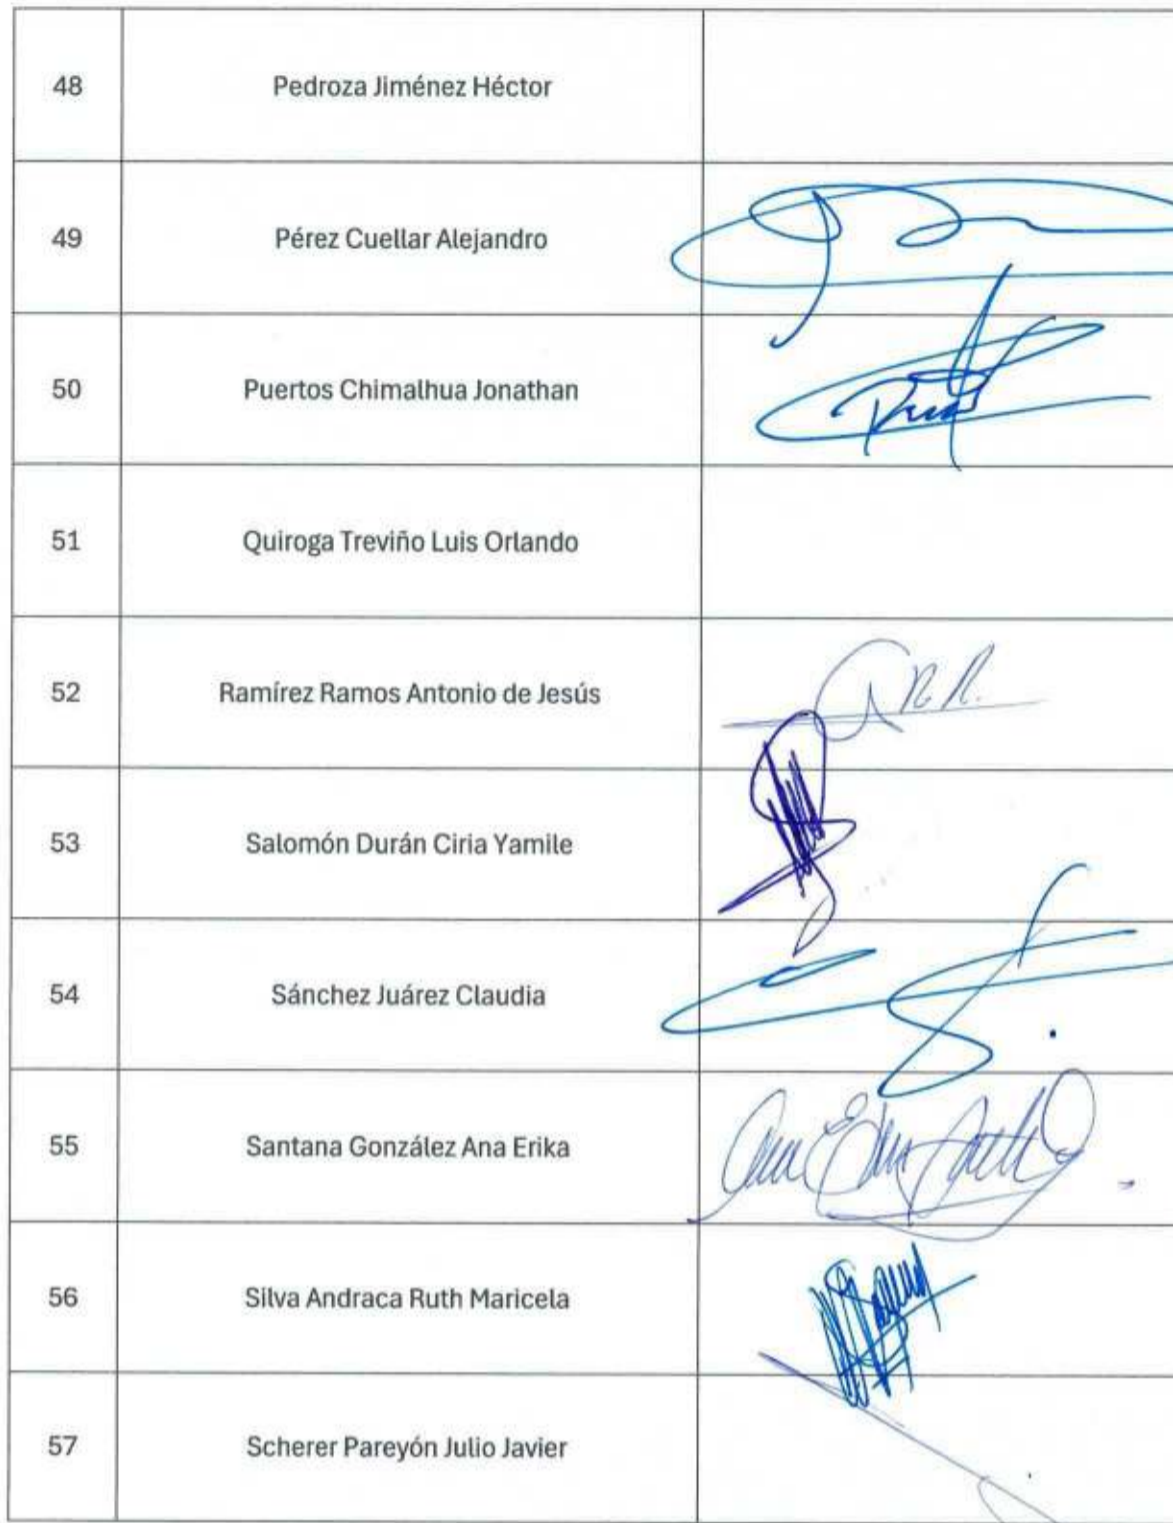 48 Pedroza Jiménez Héctor
49 Pérez Cuellar Alejandro
50 Puertos Chimalhua Jonathan
51 Quiroga Treviño Luis Orlando
52 Ramírez Ramos Antonio de Jesús
53 Salomón Durán Ciria Yamile
54 Sánchez Juárez Claudia
55 Santana González Ana Erika
56 Silva Andraca Ruth Maricela
57 Scherer Pareyón Julio Javier